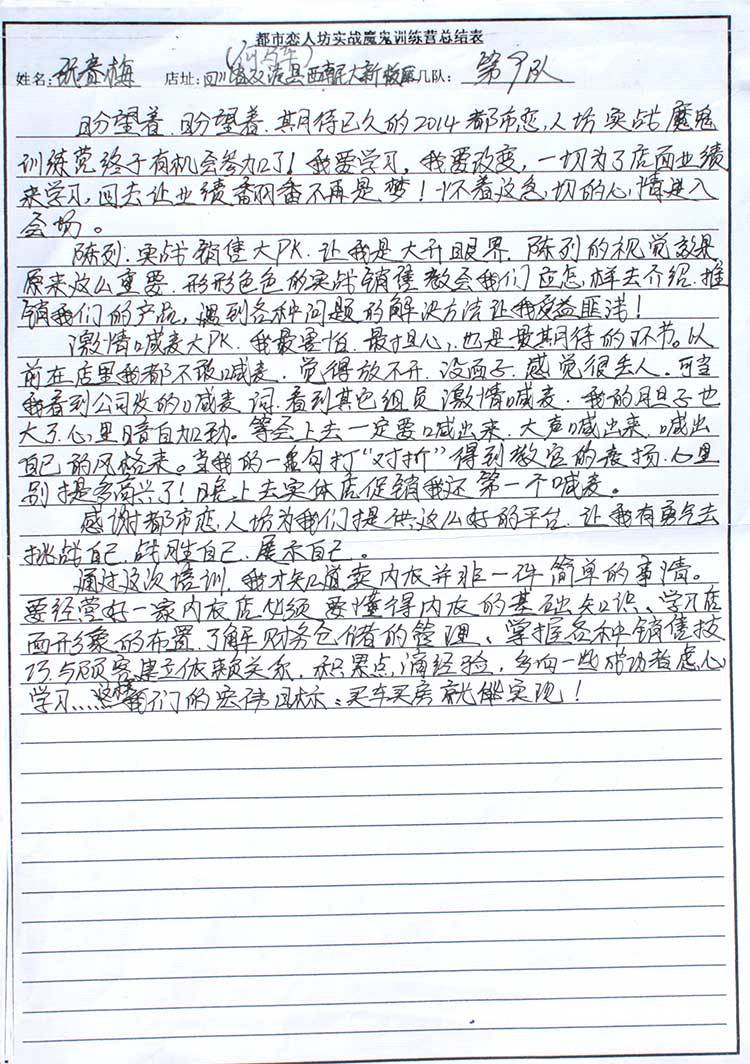 都市恋人坊实战魔鬼训练营总结表
姓名: 阮春梅 店址: 四川省双流县西航 大新 几队: 第9队
盼望着.盼望着.其期待已久的2014都市恋人坊实战魔鬼
训练营终于有机会参加了!我要学习,我要改变,一切为了店面业绩
来学习,回去让业绩翻番不再是梦!怀着这急切的心情进入
会场。
陈列.实战销售大PK.让我是大开眼界.陈列的视觉效果
原来这么重要.形形色色的实战销售教会我们应怎样去介绍.推
销我们的产品,遇到各种问题的解决方法让我受益匪浅!
激情喊麦大PK.我最害怕.最担心,也是最期待的环节。以
前在店里我都不敢喊麦.觉得放不开.没面子.感觉很丢人.可当
我看到公司发的喊麦词.看到其它组员激情喊麦.我的胆子也
大了.心里暗自加劲。等会上去一定要喊出来.大声喊出来.喊出
自己的风格来。当我的一句打“对折”得到教官的表扬.心里
别提多高兴了!晚上去实体店促销我还第一个喊麦。
感谢都市恋人坊为我们提供这么好的平台.让我有勇气去
挑战自己.战胜自己.展示自己。
通过这次培训.我才知道卖内衣并非一件简单的事情。
要经营好一家内衣店必须要懂得内衣的基础知识、学习店
面形象的布置.了解财务仓储的管理、掌握各种销售技
巧与顾客建立依赖关系.积累点滴经验,多向一些成功者虚心
学习......这样我们的宏伟目标:买车买房就能实现!